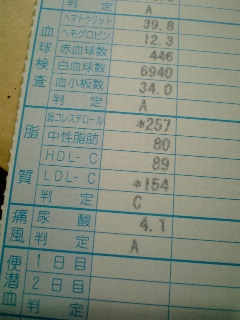 A
ヘマトクリット 39.8
ヘモグロビン 12.3
赤血球数 446
白血球数 6940
血小板数 34.0
判定 A
血球検査
総コレステロール *257
中性脂肪 80
HDL-C 89
LDL-C *154
判定 C
脂質
尿酸 4.1
判定 A
痛風
1日目
2日目
判定
便潜血